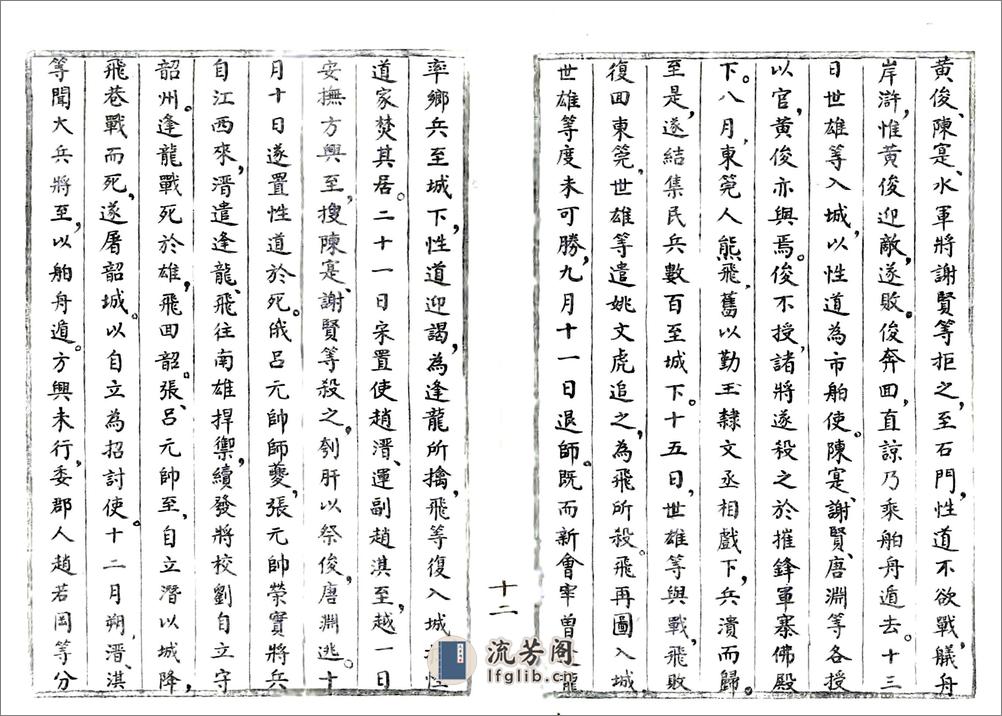 黄俊、陳寔、水軍將謝賢等拒之,至石門,性道不欲戰,艤舟
岸滸,惟黄俊迎敵,遂敗。俊奔回,直諒乃乘舶舟遁去。十三
日世雄等入城,以性道為市舶使。陳寔、謝賢、唐淵等各授
以官,黄俊亦與焉。俊不授,諸將遂殺之於摧鋒軍寨佛殿
下。八月,東筦人熊飛,舊以勤王隸文丞相戲下,兵潰而歸。
至是,遂結集民兵數百至城下。十五日,世雄等與戰,飛敗
復回東筦,世雄等遣姚文虎追之,為飛所殺。飛再圖入城
世雄等度未可勝,九月十一日退師。既而新會宰曾逢龍
十二
率鄉兵至城下,性道迎謁,為逢龍所擒,飛等復入城
道家焚其居。二十一日宋置使趙溍、運副趙淇至,越一日
安撫方興至,搜陳寔、謝賢等殺之,刳肝以祭俊,唐淵逃。十
月十日遂置性道於死。俄吕元帥師夔,張元帥榮實將兵
自江西來,溍遣逢龍、飛往南雄捍禦,續發將校劉自立守
韶州。逢龍戰死於雄,飛回韶。張、吕元帥至,自立潛以城降,
飛巷戰而死,遂屠韶城。以自立為招討使。十二月朔,溍、淇
等聞大兵將至,以舶舟遁。方興未行,委郡人趙若岡等分
流芳阁
lfglib.cn